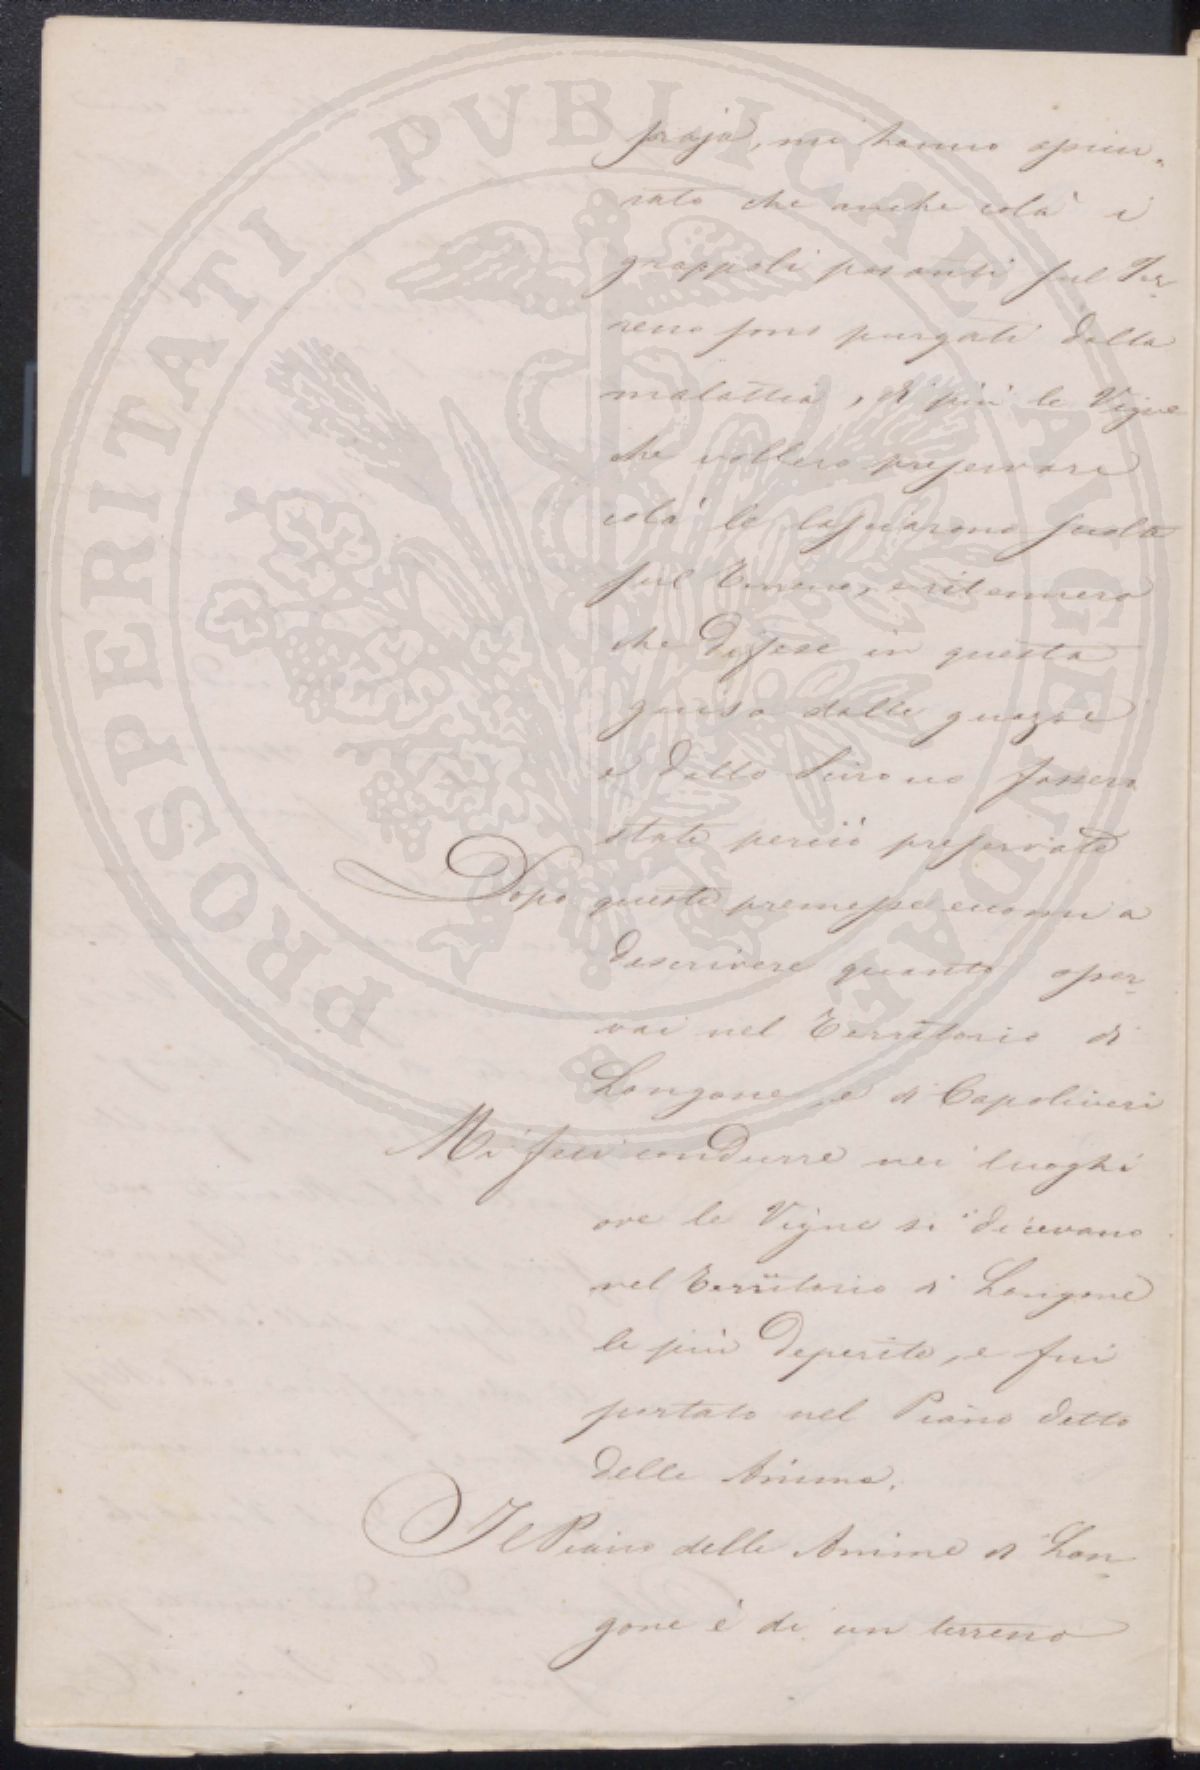 praja, mi hanno assicu-
rato che anche colà i
grappoli posanti sul Ter-
reno sono purgati dalla
malattia, di più le Vigne
che vollero preservare
colà le lasciarono sciolte
sul Terreno, e ritennero
che difese in questa
guisa dalle guazze
e dallo Scirocco fossero
state perciò preservate
Dopo queste premesse eccomi a
descrivere quanto osser-
vai nel Territorio di
Longone, e di Capoliveri
Mi feci condurre nei luoghi
ove le Vigne si dicevano
nel Territorio di Longone
le più deperite, e fui
portato nel Piano detto
delle Anime.
Il Piano delle Anime di Lon-
gone è di un terreno
PROSPERITATI PVBLICAE AVGENDAE